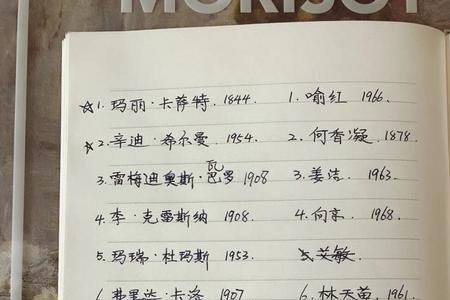 MORISOT
☆1. 玛丽·卡萨特. 1844.
☆2. 辛迪·希尔曼. 1954.
3. 雷梅迪奥斯·瓦罗 1908
4. 李·克雷斯纳 1908.
5. 玛瑞·杜玛斯 1953.
6. 弗里达·卡洛 1907
1. 喻红 1966.
2. 何香凝. 1878.
3. 姜洁. 1963.
4. 向京. 1968.
5. 艾敏.
6. 林天苗. 1961.